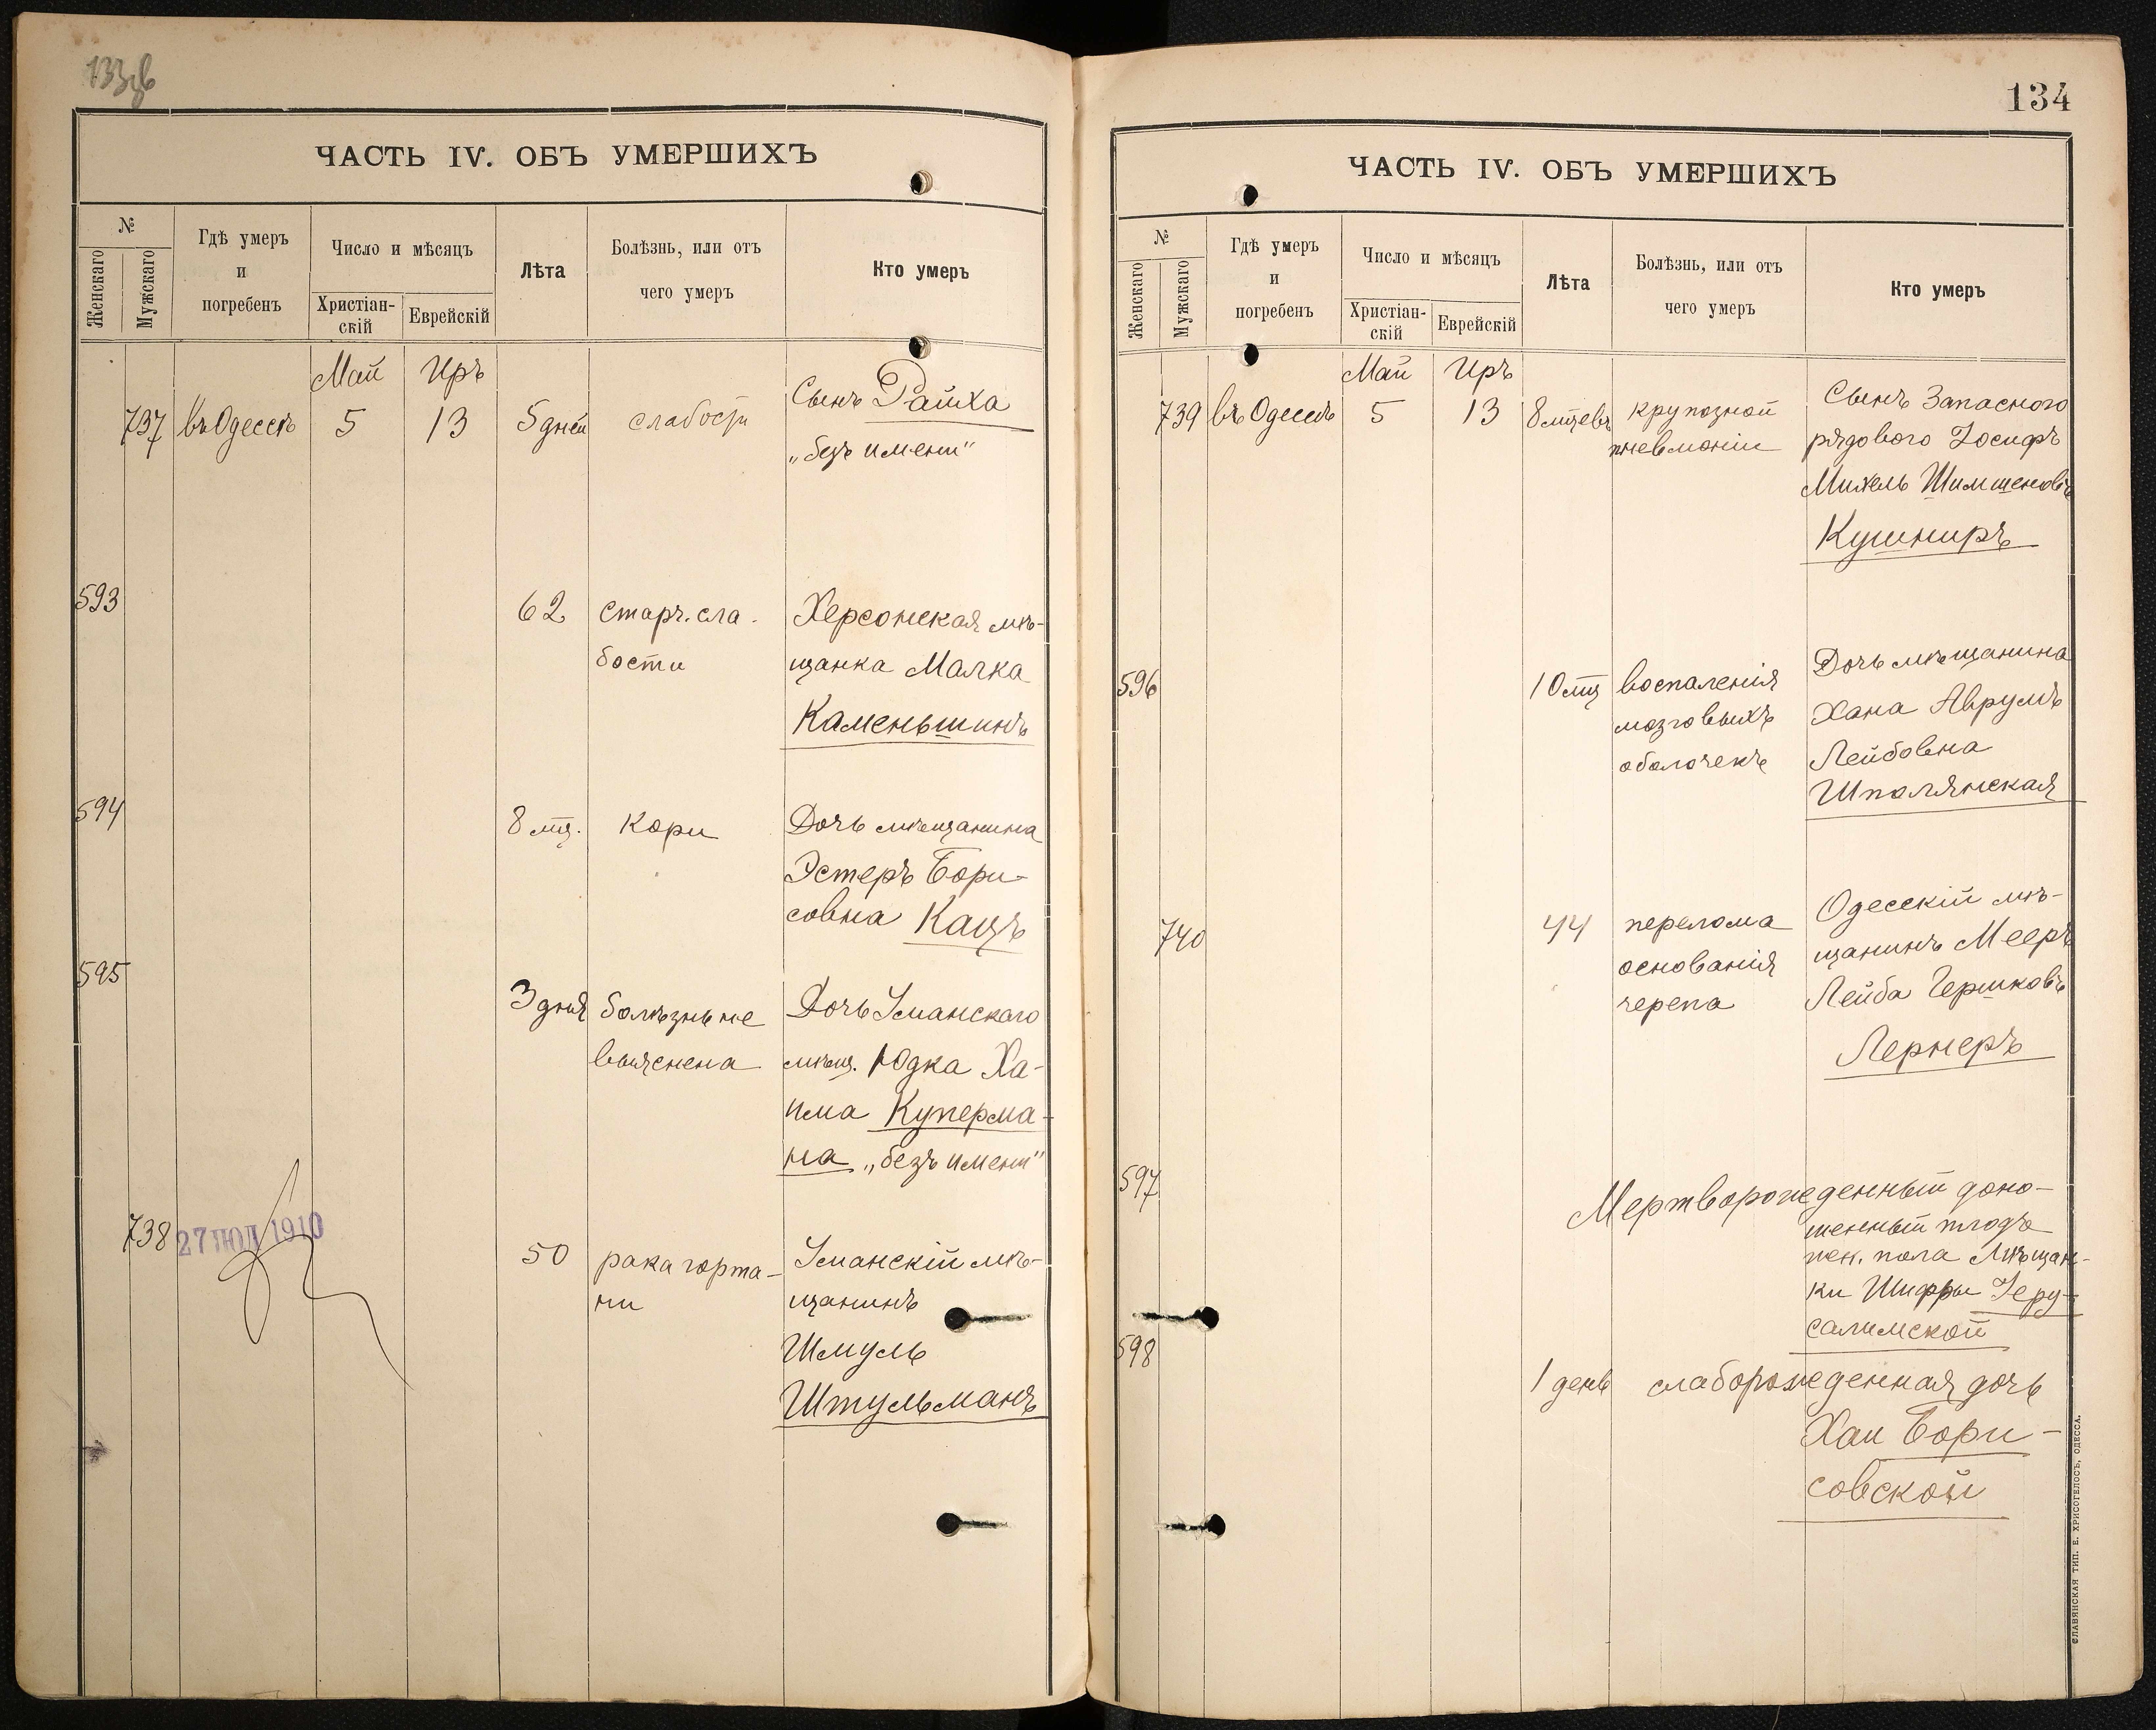 ЧАСТЬ IV. ОБЪ УМЕРШИХЪ
№
Женскаго
Мужскаго
Гдѣ умеръ
и
погребенъ
Число и мѣсяцъ
Христіан-
скій
Еврейскій
Лѣта
Болѣзнь, или отъ
чего умеръ
Кто умеръ
Май Иръ
737 въ Одессѣ 5 13 5 дней слабости Сынъ Райха
„безъ имени"
593 62 старч. сла- Херсонская мѣ-
бости щанка Малка
Каменьшинъ
594 8 мц. кори Дочь мѣщанина
Эстеръ Бори-
совна Кацъ
595
3 дня болѣзнь не Дочь Уманскаго
выяснена мѣщ. Юдка Ха-
има Куперма-
на „безъ имени"
738 27 ІЮЛ 1910
50 рака горта- Уманскій мѣ-
ни щанинъ
Шмуль
Штульманъ
134
ЧАСТЬ IV. ОБЪ УМЕРШИХЪ
№
Женскаго
Мужскаго
Гдѣ умеръ
и
погребенъ
Число и мѣсяцъ
Христіан-
скій
Еврейскій
Лѣта
Болѣзнь, или отъ
чего умеръ
Кто умеръ
Май Иръ
739 въ Одессѣ 5 13 8 мцевъ крупозной Сынъ Запасного
пневмоніи рядового Іосифъ
Михель Шимшеновъ
Кушниръ
596 10 мц воспаленія Дочь мѣщанина
мозговыхъ Хана Аврумъ
оболочекъ Лейбовна
Шполянская
740 44 перелома Одесскій мѣ-
основанія щанинъ Мееръ
черепа Лейба Гершковъ
Лернеръ
597 Мертворожденный доно-
шенный плодъ
жен. пола Мѣщан-
ки Шифры Іеру-
салимской
598
1 день слаборожденная дочь
Хаи Бори-
совской
СЛАВЯНСКАЯ ТИП. Е. ХРИСОГЕЛОСЪ, ОДЕССА.